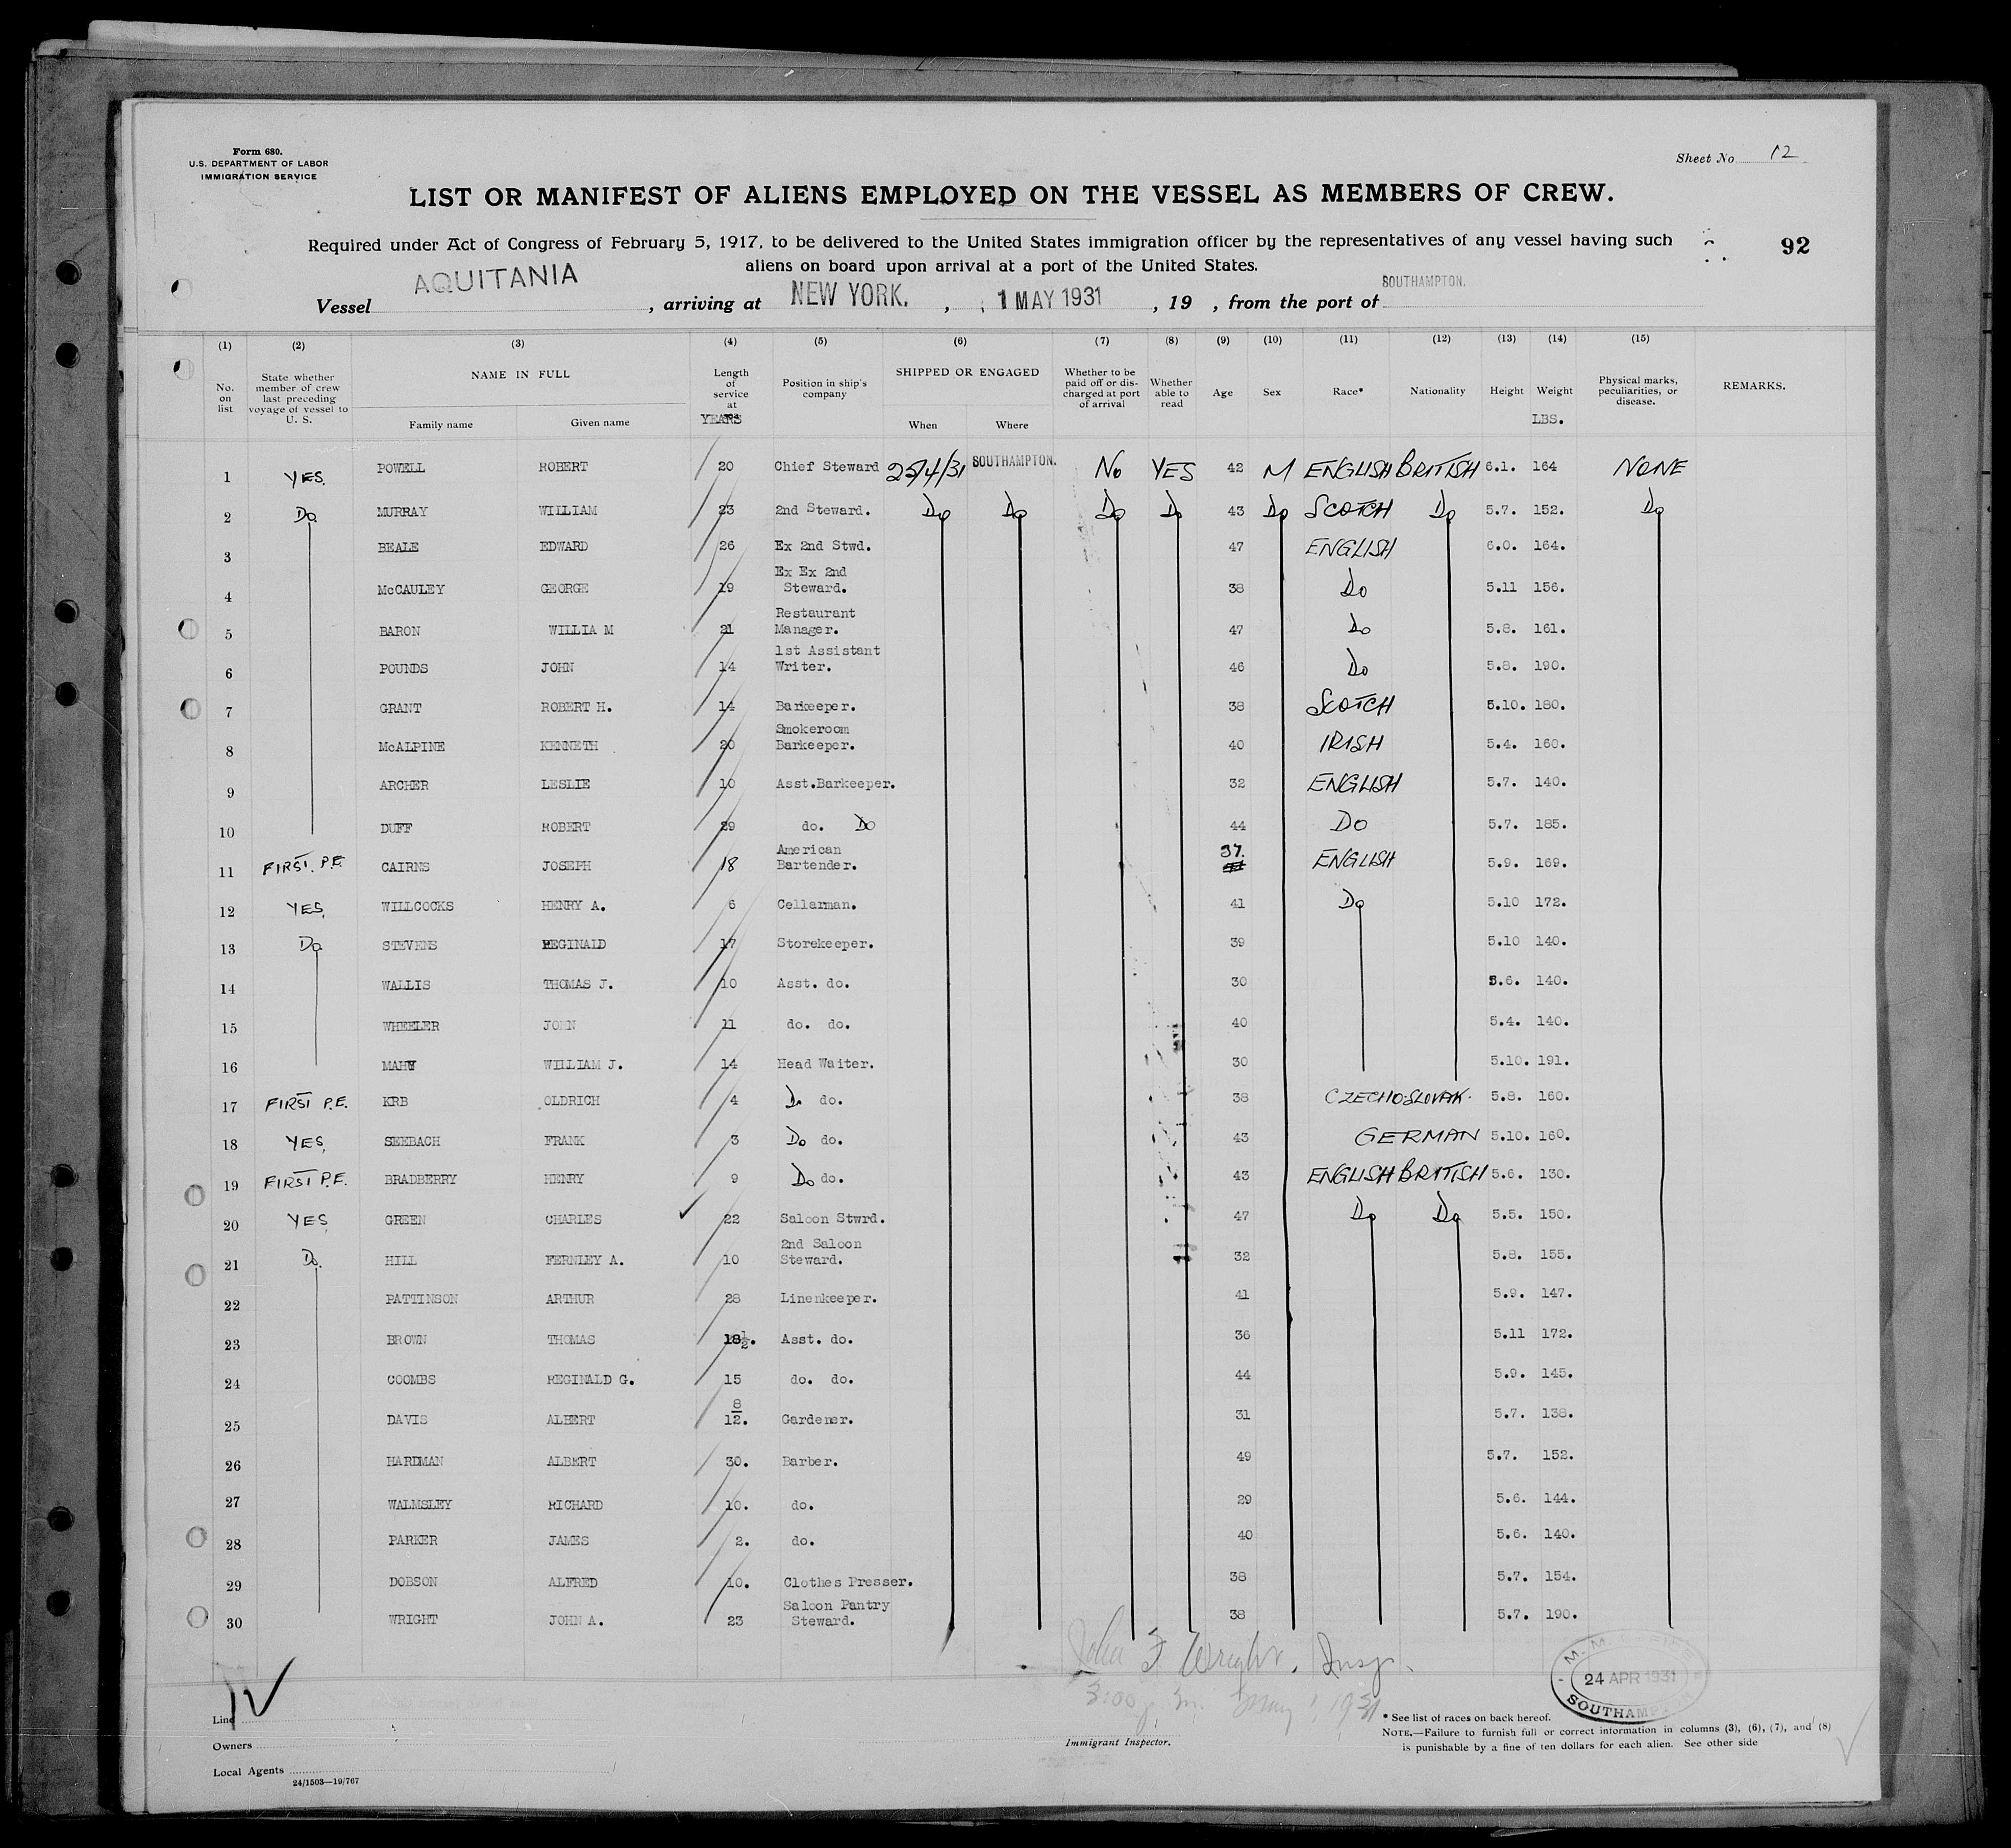 Form 680.
U.S. DEPARTMENT OF LABOR
IMMIGRATION SERVICE
Sheet No 12
LIST OR MANIFEST OF ALIENS EMPLOYED ON THE VESSEL AS MEMBERS OF CREW.
Required under Act of Congress of February 5, 1917, to be delivered to the United States immigration officer by the representatives of any vessel having such
aliens on board upon arrival at a port of the United States.
92
Vessel AQUITANIA, arriving at NEW YORK., 1 MAY 1931, 19 , from the port of SOUTHAMPTON.
(1) (2) (3) (4) (5) (6) (7) (8) (9) (10) (11) (12) (13) (14) (15)
No. on list State whether member of crew last preceding voyage of vessel to U. S. NAME IN FULL Family name Given name Length of service at YEARS Position in ship's company SHIPPED OR ENGAGED When Where Whether to be paid off or discharged at port of arrival Whether able to read Age Sex Race* Nationality Height Weight LBS. Physical marks, peculiarities, or disease. REMARKS.
1 YES. POWELL ROBERT 20 Chief Steward 25/4/31 SOUTHAMPTON. No YES 42 M ENGLISH BRITISH 6.1. 164 NONE
2 Do MURRAY WILLIAM 23 2nd Steward. Do Do Do Do 43 Do SCOTCH Do 5.7. 152. Do
3 BEALE EDWARD 26 Ex 2nd Stwd. 47 ENGLISH 6.0. 164.
4 McCAULEY GEORGE 19 Ex Ex 2nd Steward. 38 Do 5.11 156.
5 BARON WILLIA M 21 Restaurant Manager. 47 Do 5.8. 161.
6 POUNDS JOHN 14 1st Assistant Writer. 46 Do 5.8. 190.
7 GRANT ROBERT H. 14 Barkeeper. 38 SCOTCH 5.10. 180.
8 McALPINE KENNETH 20 Smokeroom Barkeeper. 40 IRISH 5.4. 160.
9 ARCHER LESLIE 10 Asst.Barkeeper. 32 ENGLISH 5.7. 140.
10 DUFF ROBERT 29 do. Do 44 Do 5.7. 185.
11 FIRST. P.E. CAIRNS JOSEPH 18 American Bartender. 37. ENGLISH 5.9. 169.
12 YES, WILLCOCKS HENRY A. 6 Cellarman. 41 Do 5.10 172.
13 Do STEVENS REGINALD 17 Storekeeper. 39 5.10 140.
14 WALLIS THOMAS J. 10 Asst. do. 30 5.6. 140.
15 WHEELER JOHN 11 do. do. 40 5.4. 140.
16 MAHY WILLIAM J. 14 Head Waiter. 30 5.10. 191.
17 FIRST P.E. KRB OLDRICH 4 Do do. 38 CZECHOSLOVAK. 5.8. 160.
18 YES, SEEBACH FRANK 3 Do do. 43 GERMAN 5.10. 160.
19 FIRST P.E. BRADBERRY HENRY 9 Do do. 43 ENGLISH BRITISH 5.6. 130.
20 YES, GREEN CHARLES 22 Saloon Stwrd. 47 Do Do 5.5. 150.
21 Do. HILL FERNLEY A. 10 2nd Saloon Steward. 32 5.8. 155.
22 PATTINSON ARTHUR 28 Linenkeeper. 41 5.9. 147.
23 BROWN THOMAS 18½. Asst. do. 36 5.11 172.
24 COOMBS REGINALD G. 15 do. do. 44 5.9. 145.
25 DAVIS ALBERT 8/12. Gardener. 31 5.7. 138.
26 HARDMAN ALBERT 30. Barber. 49 5.7. 152.
27 WALMSLEY RICHARD 10. do. 29 5.6. 144.
28 PARKER JAMES 2. do. 40 5.6. 140.
29 DOBSON ALFRED 10. Clothes Presser. 38 5.7. 154.
30 WRIGHT JOHN A. 23 Saloon Pantry Steward. 38 5.7. 190.
John F Wright, Insp.
3:00 p.m. May 1 1931
24 APR 1931
SOUTHAMPTON
Line
Owners
Local Agents
24/1503—19/767
Immigrant Inspector.
* See list of races on back hereof.
NOTE.—Failure to furnish full or correct information in columns (3), (6), (7), and (8)
is punishable by a fine of ten dollars for each alien. See other side